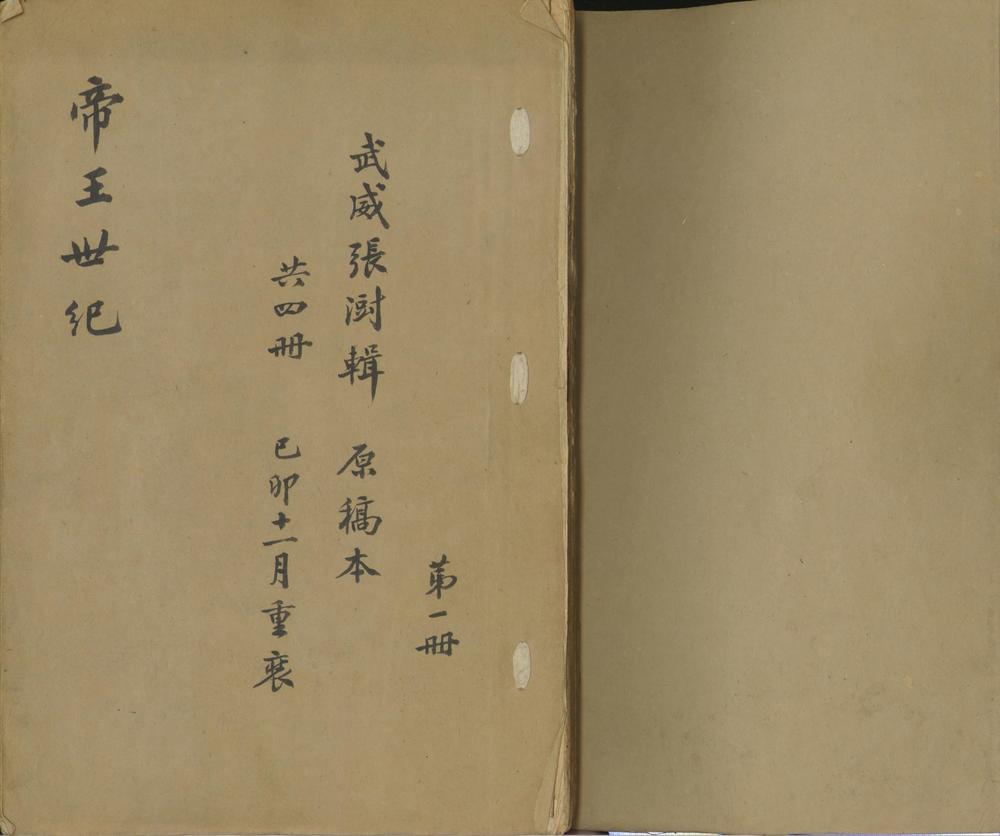 第一冊
武威張澍輯 原稿本
共四冊 己卯十一月重裝
帝王世紀